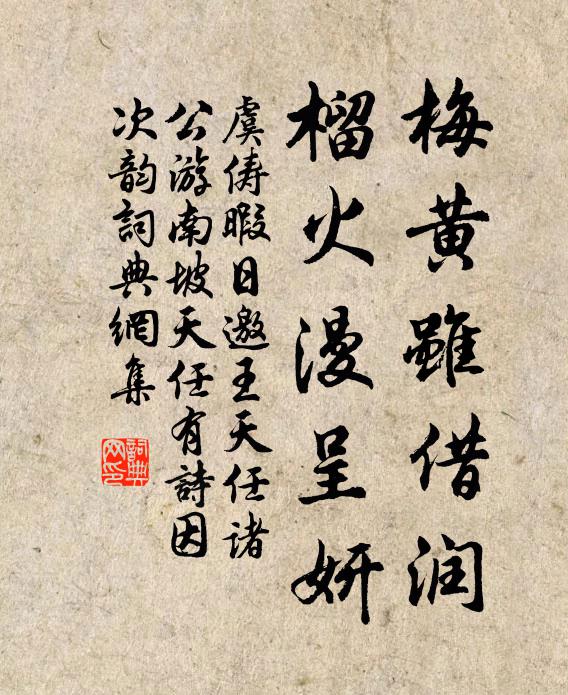 梅黄雖借润
榴火漫呈妍
虞俦暇日邀王天任诸
公游南坡天任有詩因
次韵詞典網集
詞典网印